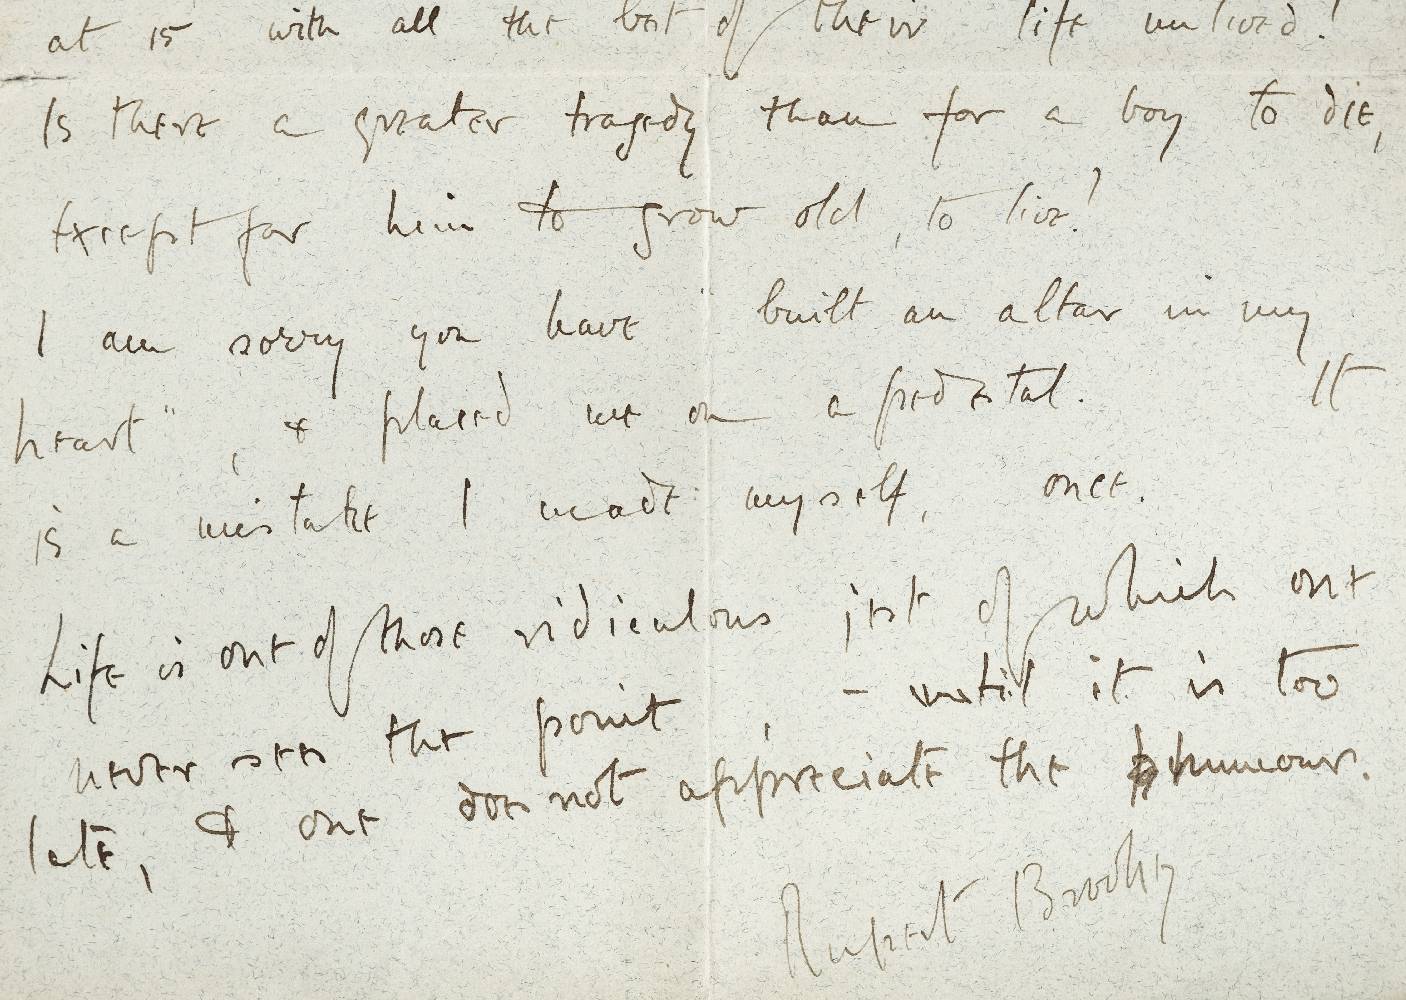 at 15 with all the best of their life unlived!
Is there a greater tragedy than for a boy to die,
except for him to grow old, to live!
I am sorry you have " built an altar in my
heart", & placed me on a pedestal. It
is a mistake I made myself, once.
Life is one of those ridiculous jest of which one
never sees the point, - until it is too
late, & one does not appreciate the humour.
Rupert Brooke